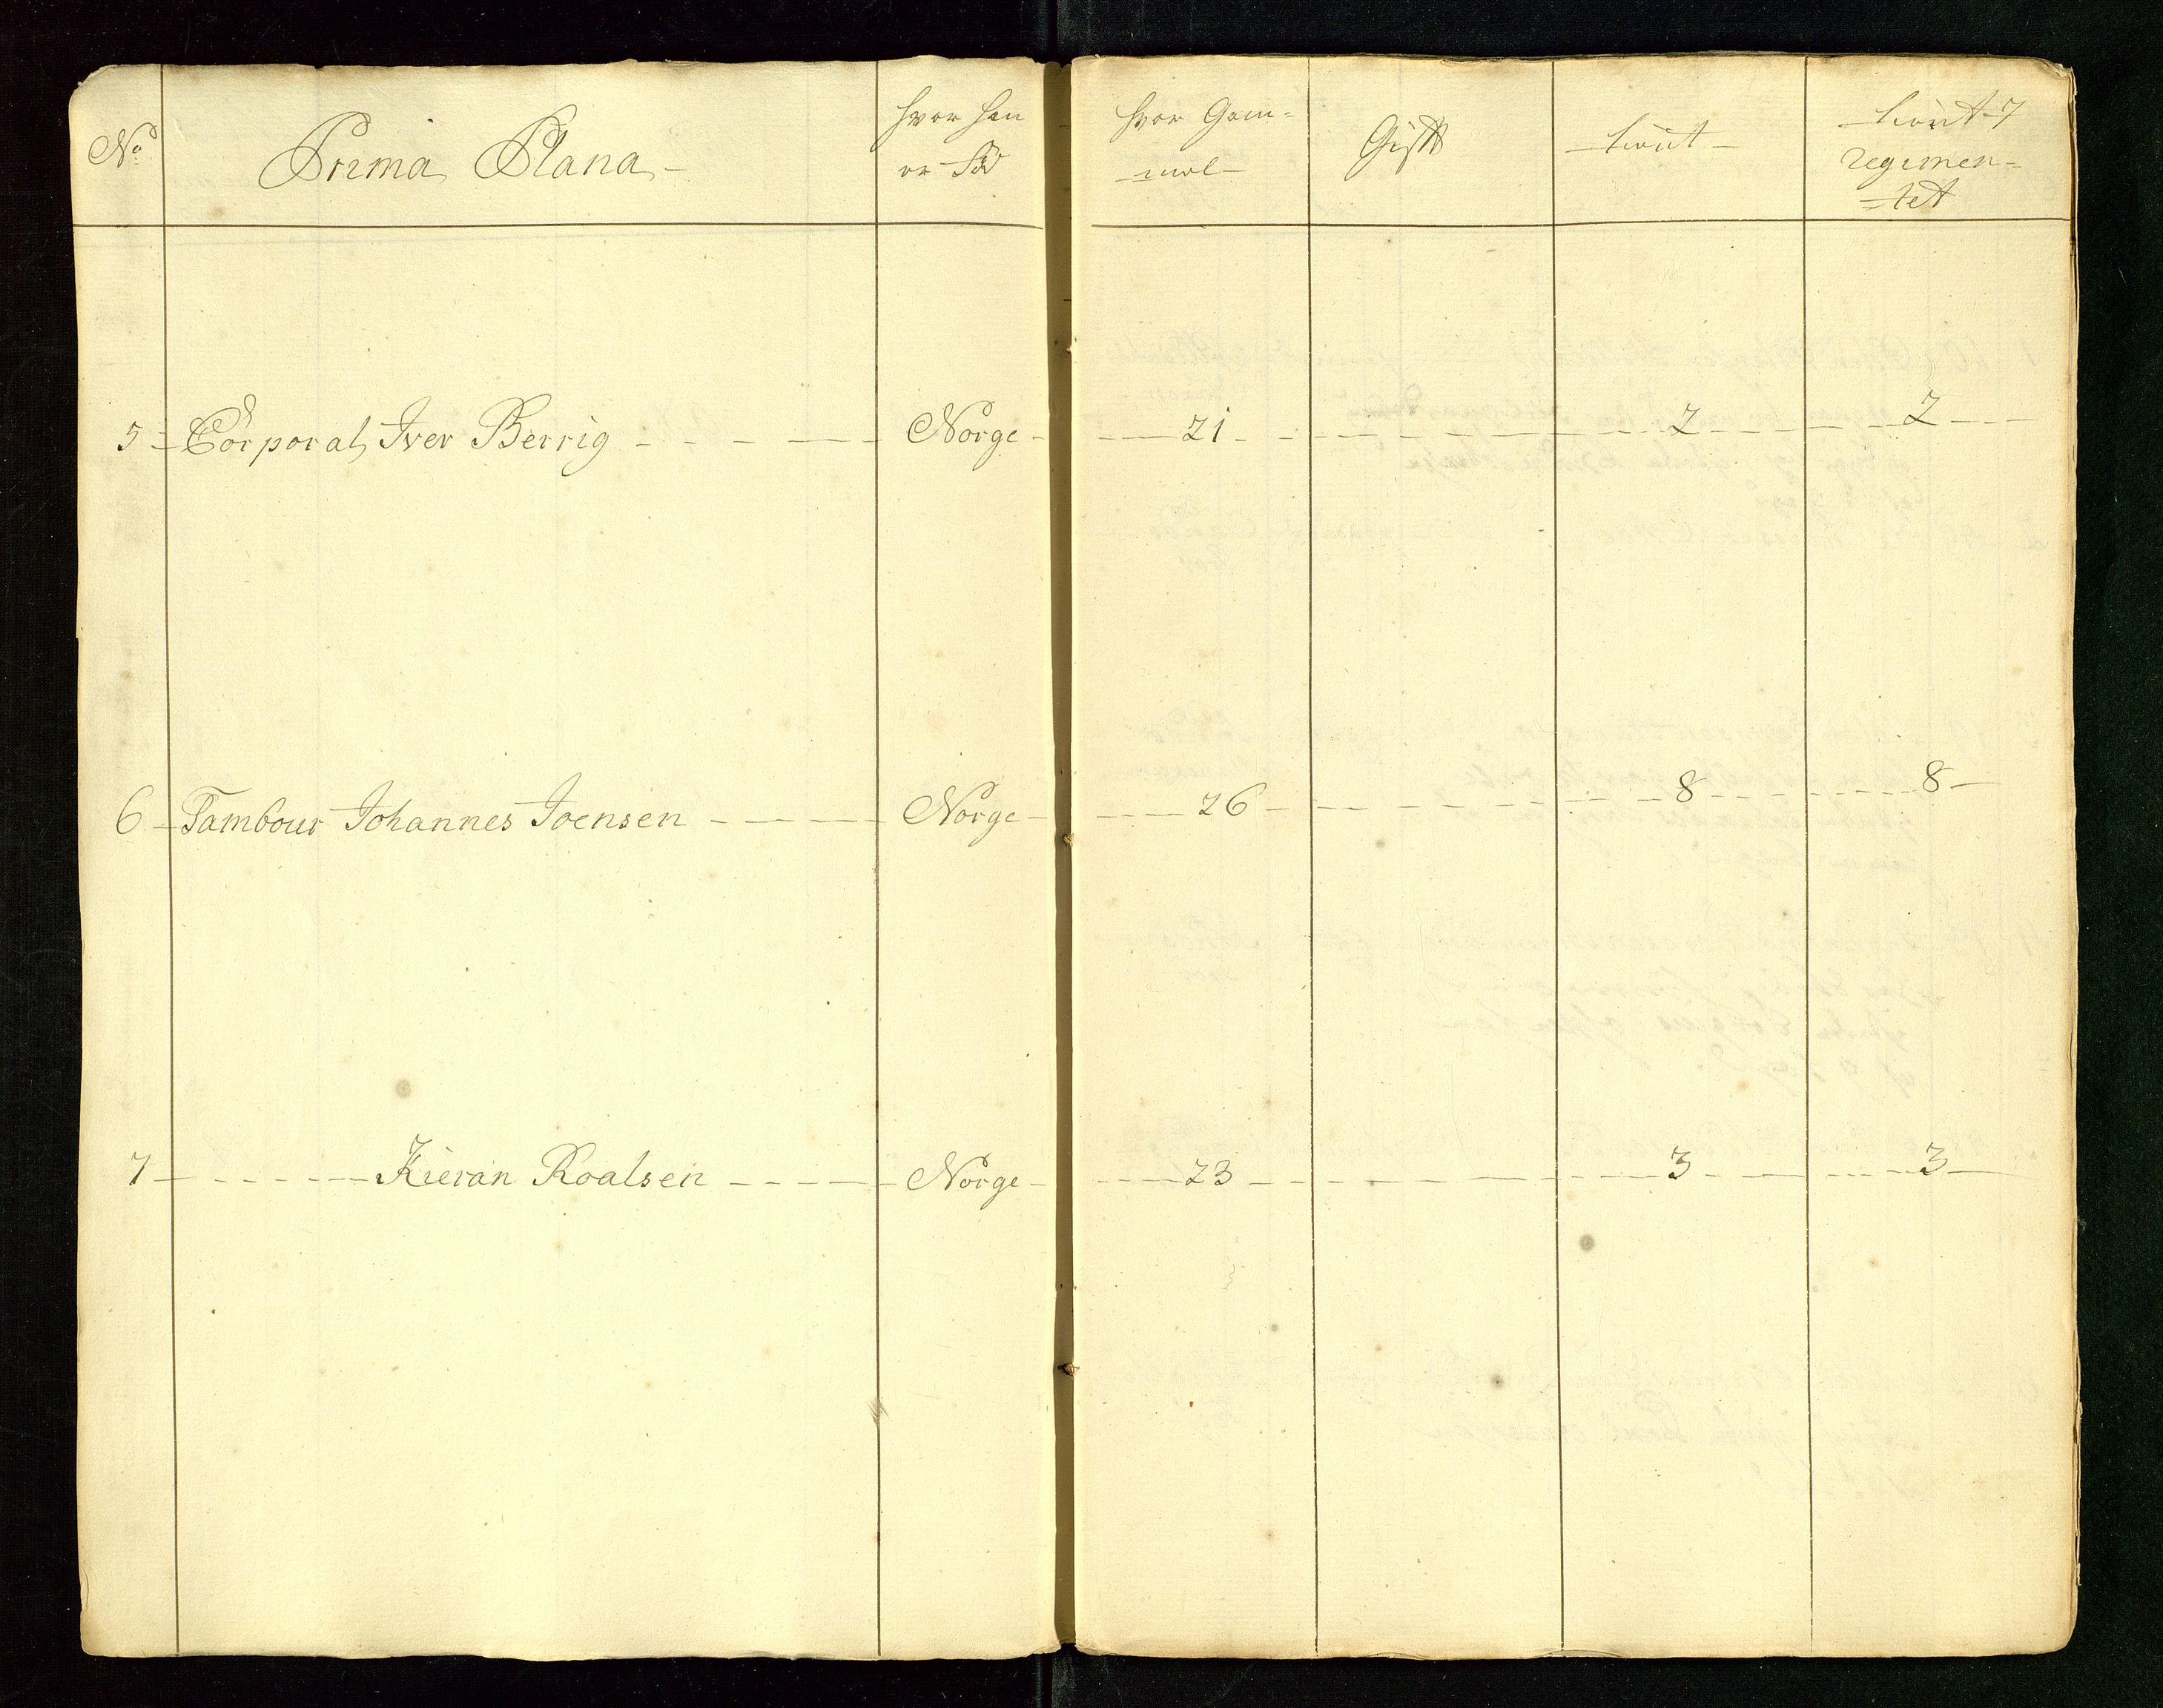 No Prima Plana hvor han er Fød hvor Gam= mel Gift tient tient i regimen= tet
5 Corporal Iver Berrig Norge 21 2 2
6 Tambour Johannes Joensen Norge 26 8 8
7 Kieran Roalsen Norge 23 3 3